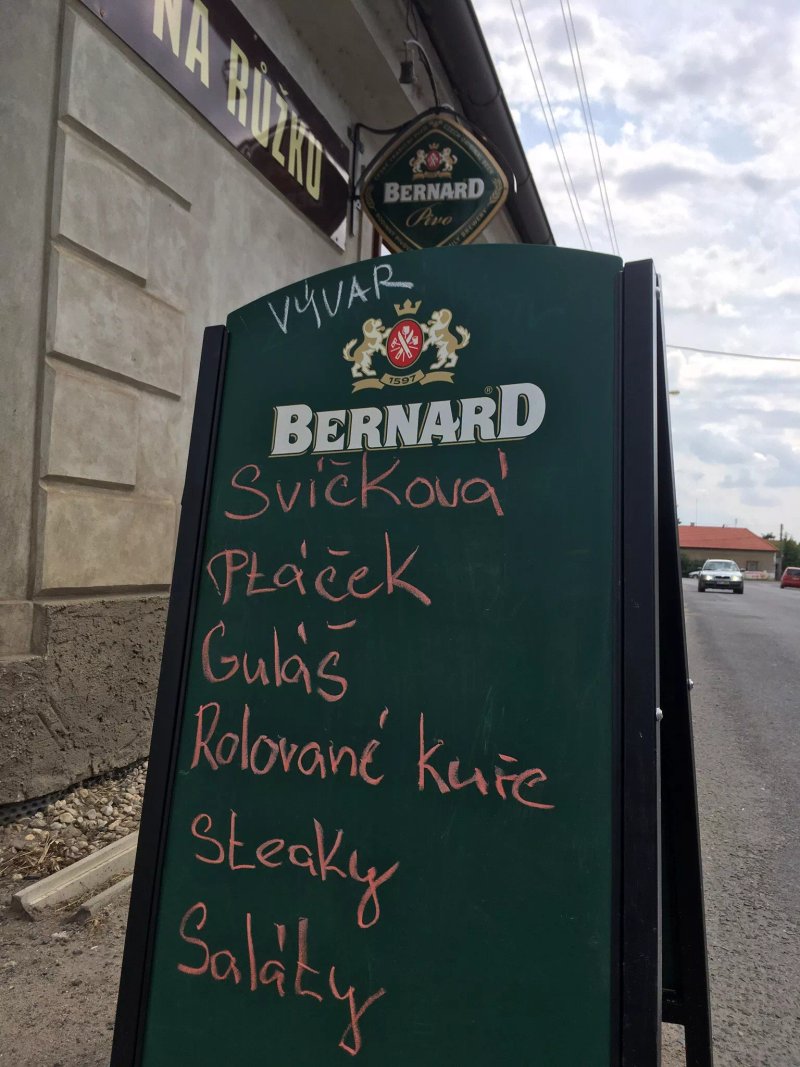 NA RŮŽKU
BERNARD
Pivo
VÝVAR
1597
BERNARD
Svíčková
Ptáček
Guláš
Rolované kuře
Steaky
Saláty